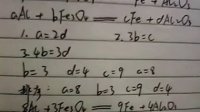 Fe + Al₂O₃
aAl + bFe₃O₄ == cFe + dAl₂O₃
1. a=2d 2. 3b=c
3. 4b=3d
b=3 d=4 c=9 a=8
a=8 b=3 c=9 d=4
8Al + 3Fe₃O₄ == 9Fe + 4Al₂O₃